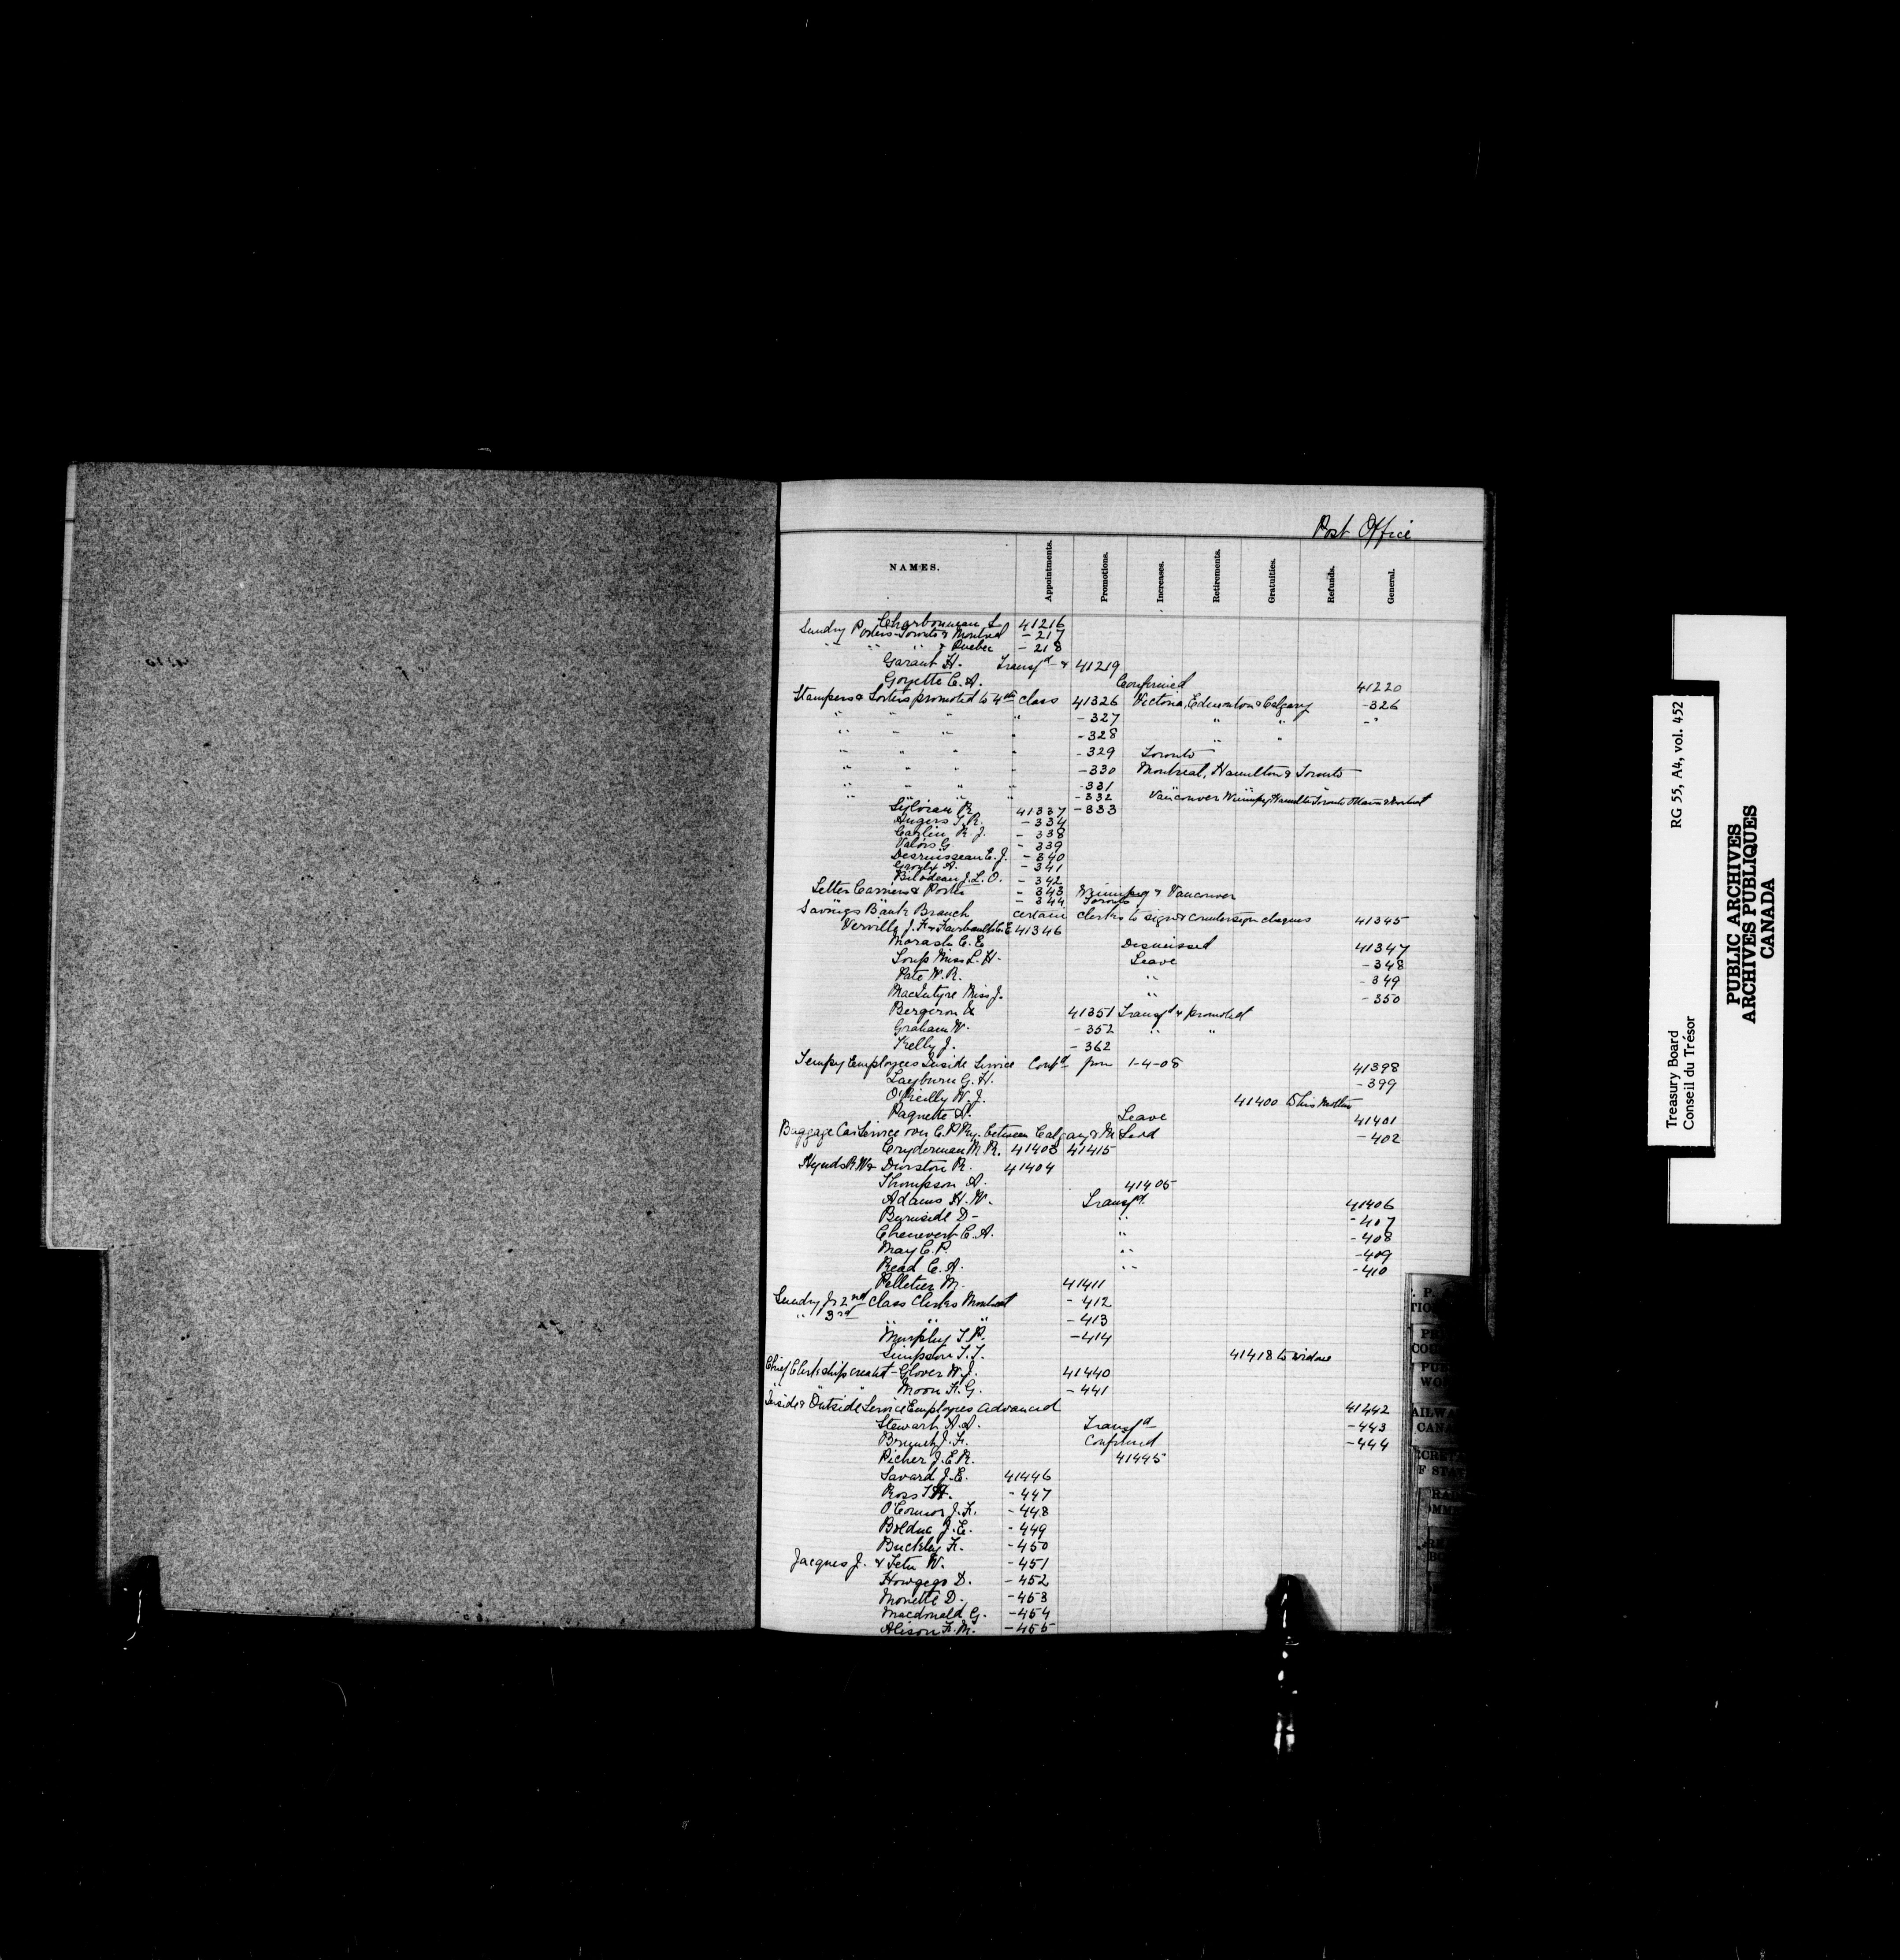 Post Office
NAMES. Appointments. Promotions. Increases. Retirements. Gratuities. Refunds. General.
Charbonneau L. 41216
Sundry Porters Toronto & Montreal - 217
" " " & Quebec - 218
Garant H. Transfd & 41219
Goyette C. A. Confirmed 41220
Stampers & Sorters promoted to 4th Class 41326 Victoria, Edmonton & Calgary -326
" " " " -327 " " - "
" " " " -328 " "
" " " " -329 Toronto
" " " " -330 Montreal, Hamilton & Toronto
" " " " -331
" " " " -332 Vancouver Winnipeg Hamilton Toronto Ottawa & Montreal
R. 41337 -333
Angers R. - 334
R. J. - 338
Valois G. - 339
Desruisseau E. J. - 340
A. - 341
Bilodeau J. L. O. - 342
Letter Carriers & Porters - 343 Winnipeg & Vancouver
- 344 Toronto
Savings Bank Branch certain clerks to sign & countersign cheques 41345
Verville J. F. & 41346
Morash C. E. Dismissed 41347
Miss L. H. Leave - 348
Pate W. R. " - 349
MacIntyre Miss J. " - 350
Bergeron 41351 Transfd & promoted
Graham W. - 352 " "
Kelly J. - 362
Tempy Employees Inside Service Contd from 1-4-08 41398
Layburn G. H. - 399
O'Reilly W. J. 41400 to his mother
Paquette A. Leave 41401
Baggage Car Service over C. P. Ry. between Calgary & McLeod - 402
Cryderman M. R. 41403 41415
Hynds R. W. & Durston R. 41404
Thompson A. 41405
Adams H. W. Transfd. 41406
Burnside D - " - 407
Chenevert C. A. " - 408
May C. P. " - 409
Read C. A. " - 410
Pelletier M. 41411
Sundry Jr 2nd Class Clerks Montreal - 412
" 3rd " " " - 413
Murphy T. P. - 414
Simpson T. T. 41418 to widow
Chief Clerkships created - Glover W. J. 41440
" " " Moon F. G. - 441
Inside & Outside Service Employees advanced 41442
Stewart A. A. Transfd - 443
J. F. Confirmed - 444
Richer J. E. R. 41445
Savard J. E. 41446
Ross T. H. - 447
O'Connor J. F. - 448
Bolduc J. E. - 449
Buckley F. - 450
Jacques J. & Tetu W. - 451
Howgego D. - 452
Monette D. - 453
Macdonald G. - 454
Alison F. M. - 455
Treasury Board
Conseil du Trésor
RG 55, A4, vol. 452
PUBLIC ARCHIVES
ARCHIVES PUBLIQUES
CANADA